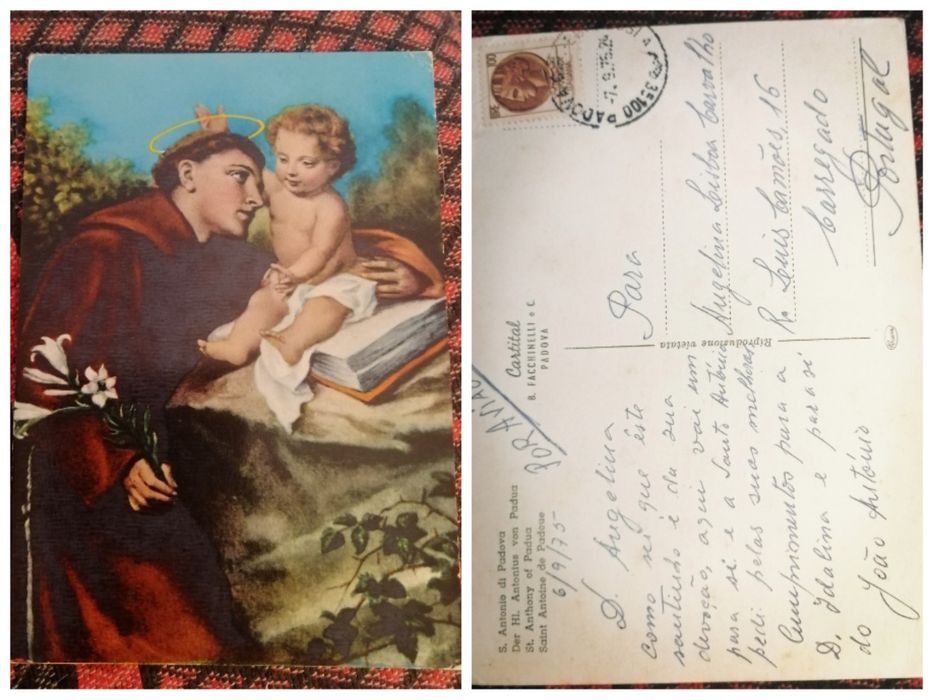 S. Antonio di Padova
Der Hl. Antonius von Padua
St. Anthony of Padua
Saint Antoine de Padoue
6/9/75
POR AVIÃO
Cartital
B. FACCHINELLI & C.
PADOVA
D. Angelina
como sei que êste
santinho é da sua
devoção, aqui vai um
para si e a Santo António
pedi pelas suas melhoras
Cumprimentos para a
D. Idalina e para si
do João António
Riproduzione vietata
100
35100 PADOVA
-7.9.75
Para
Angelina Lisboa Carvalho
R. Luis Camões, 16
Carregado
Portugal